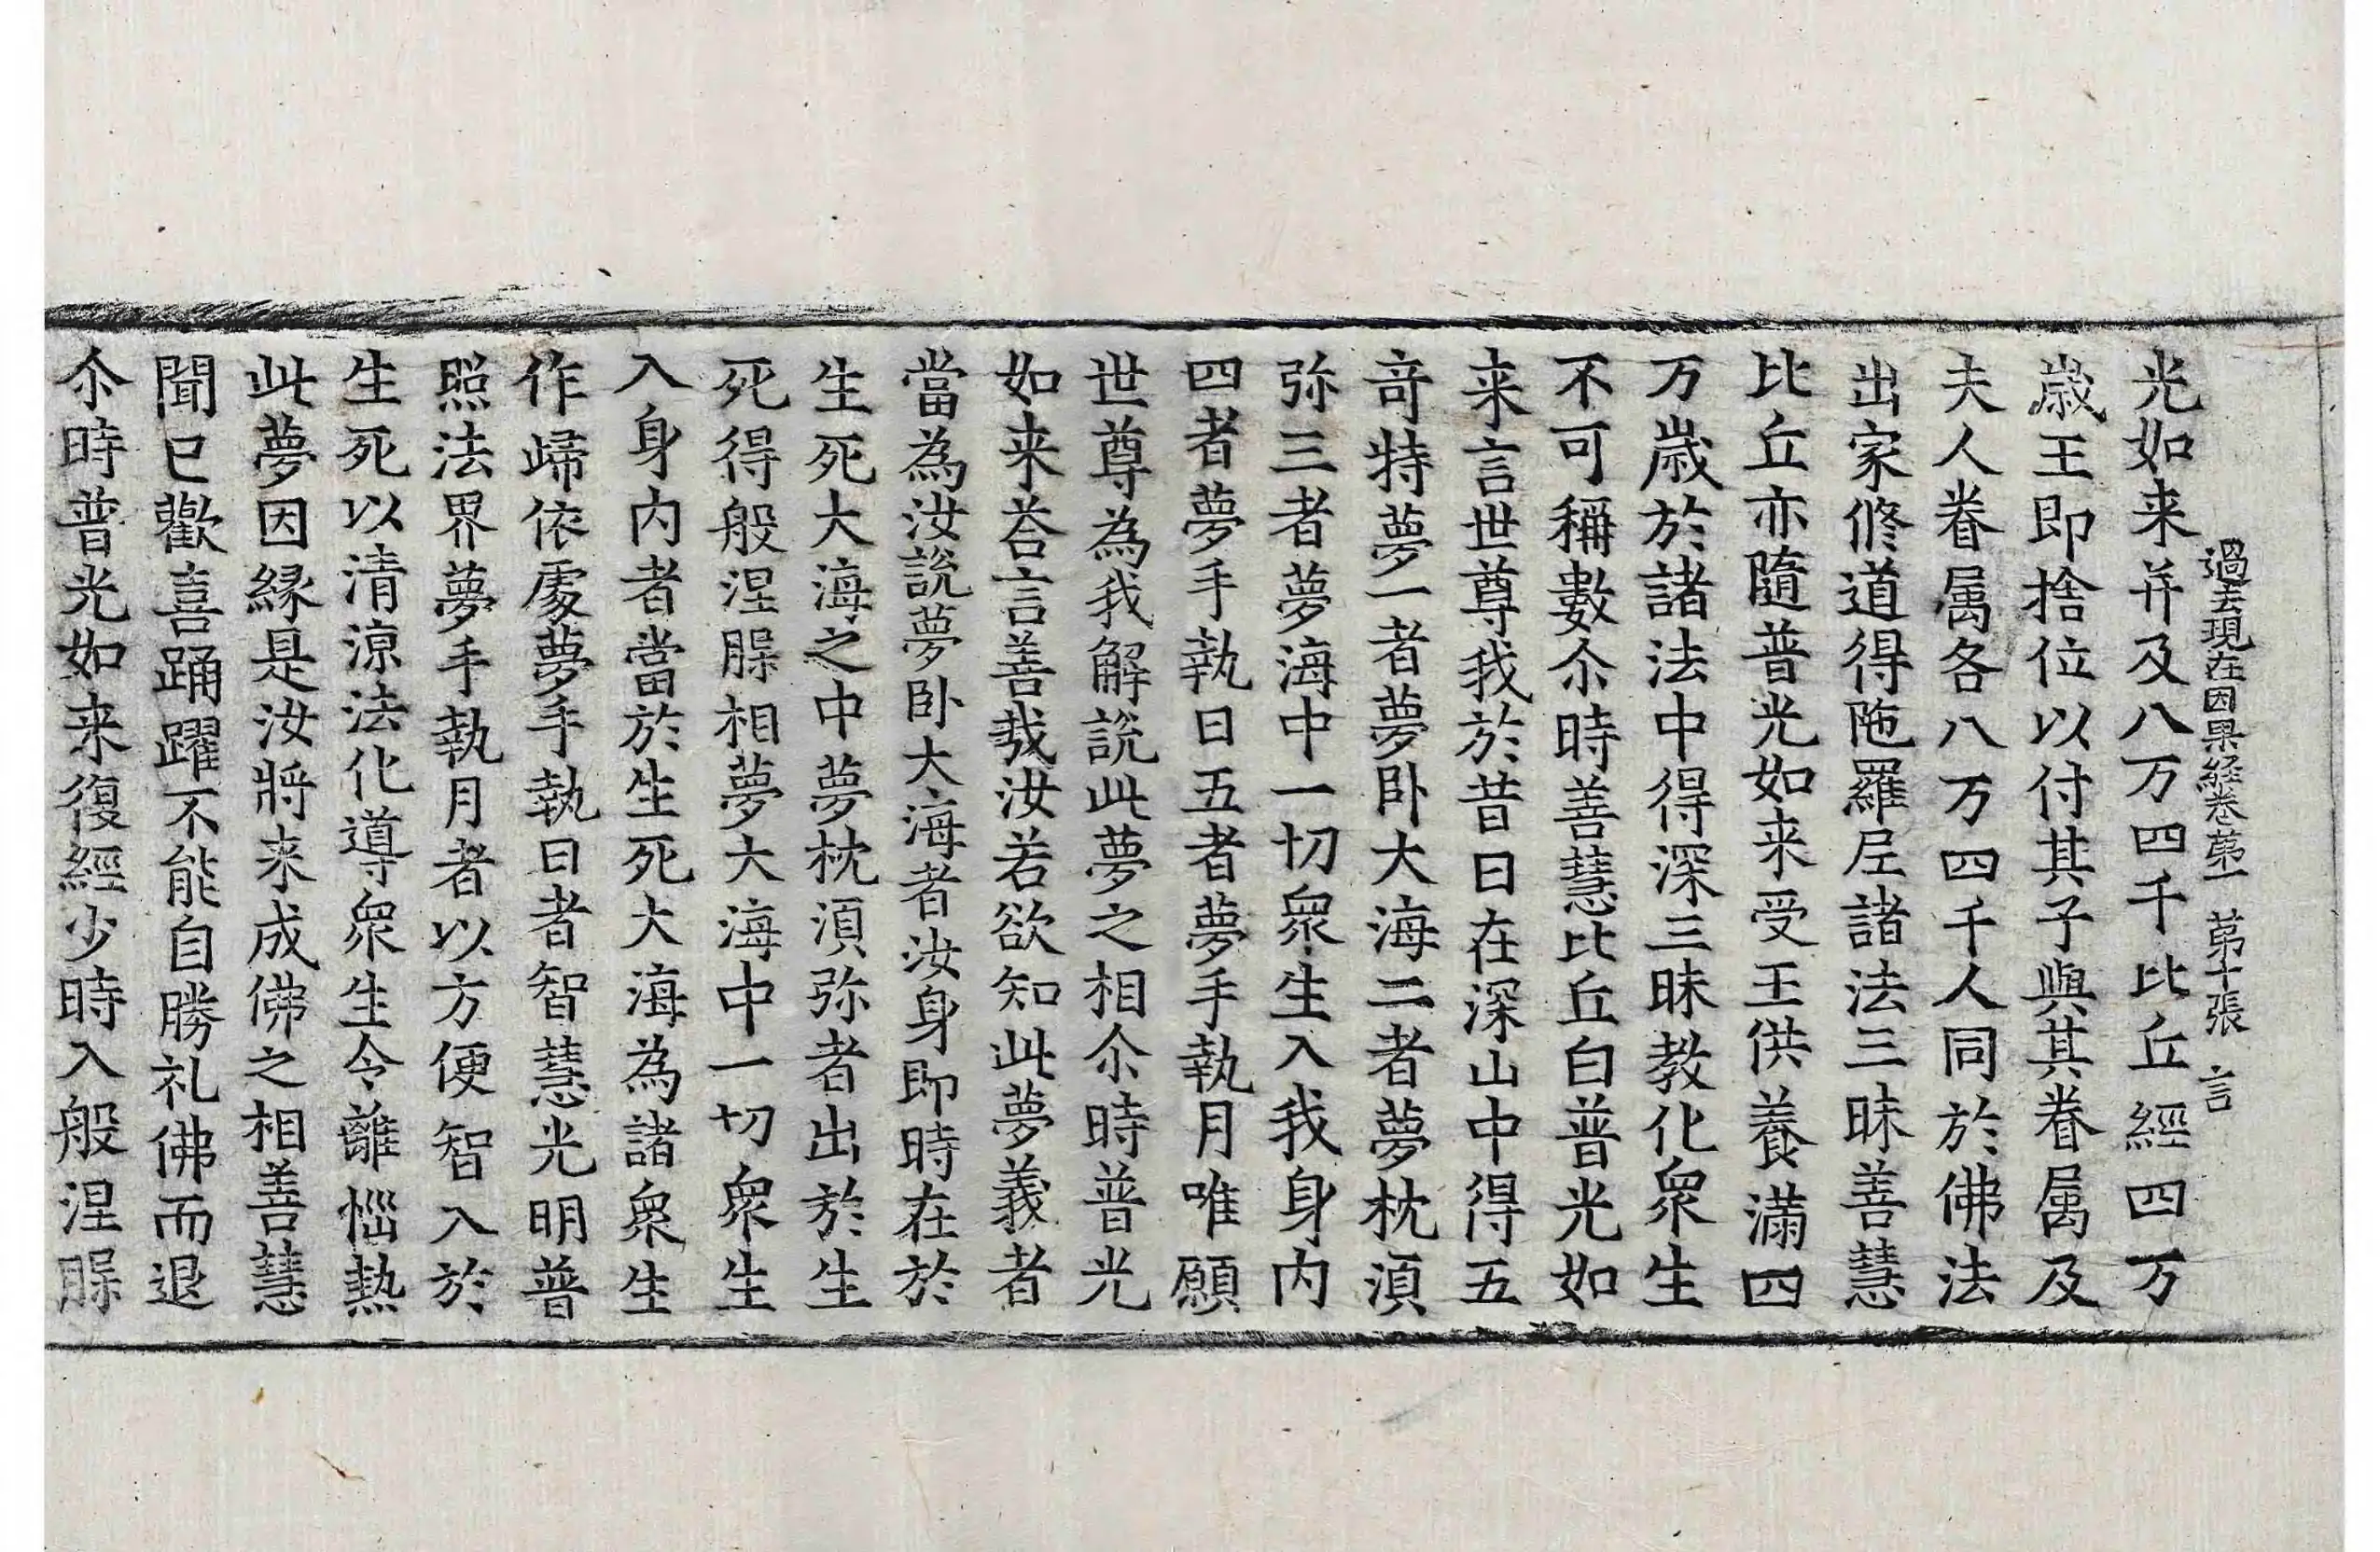 過去現在因果経卷苐一 苐十張 言
光如来并及八万四千比丘經四万
歳王即捨位以付其子與其眷属及
夫人眷属各八万四千人同於佛法
出家修道得陁羅尼諸法三昧善慧
比丘亦隨普光如来受王供養滿四
万歳於諸法中得深三昧教化衆生
不可稱數尒時善慧比丘白普光如
来言世尊我於昔日在深山中得五
竒特夢一者夢卧大海二者夢枕湏
弥三者夢海中一切衆生入我身内
四者夢手執日五者夢手執月唯願
世尊為我解說此夢之相尒時普光
如来荅言善㢤汝若欲知此夢義者
當為汝說夢卧大海者汝身即時在於
生死大海之中夢枕湏弥者出於生
死得般涅膤相夢大海中一切衆生
入身内者當於生死大海為諸衆生
作歸依處夢手執日者智慧光明普
照法界夢手執月者以方便智入於
生死以清涼法化導衆生令離惱熱
此夢因縁是汝將来成佛之相善慧
聞已歡喜踊躍不能自勝礼佛而退
尒時普光如来復經少時入般涅膤